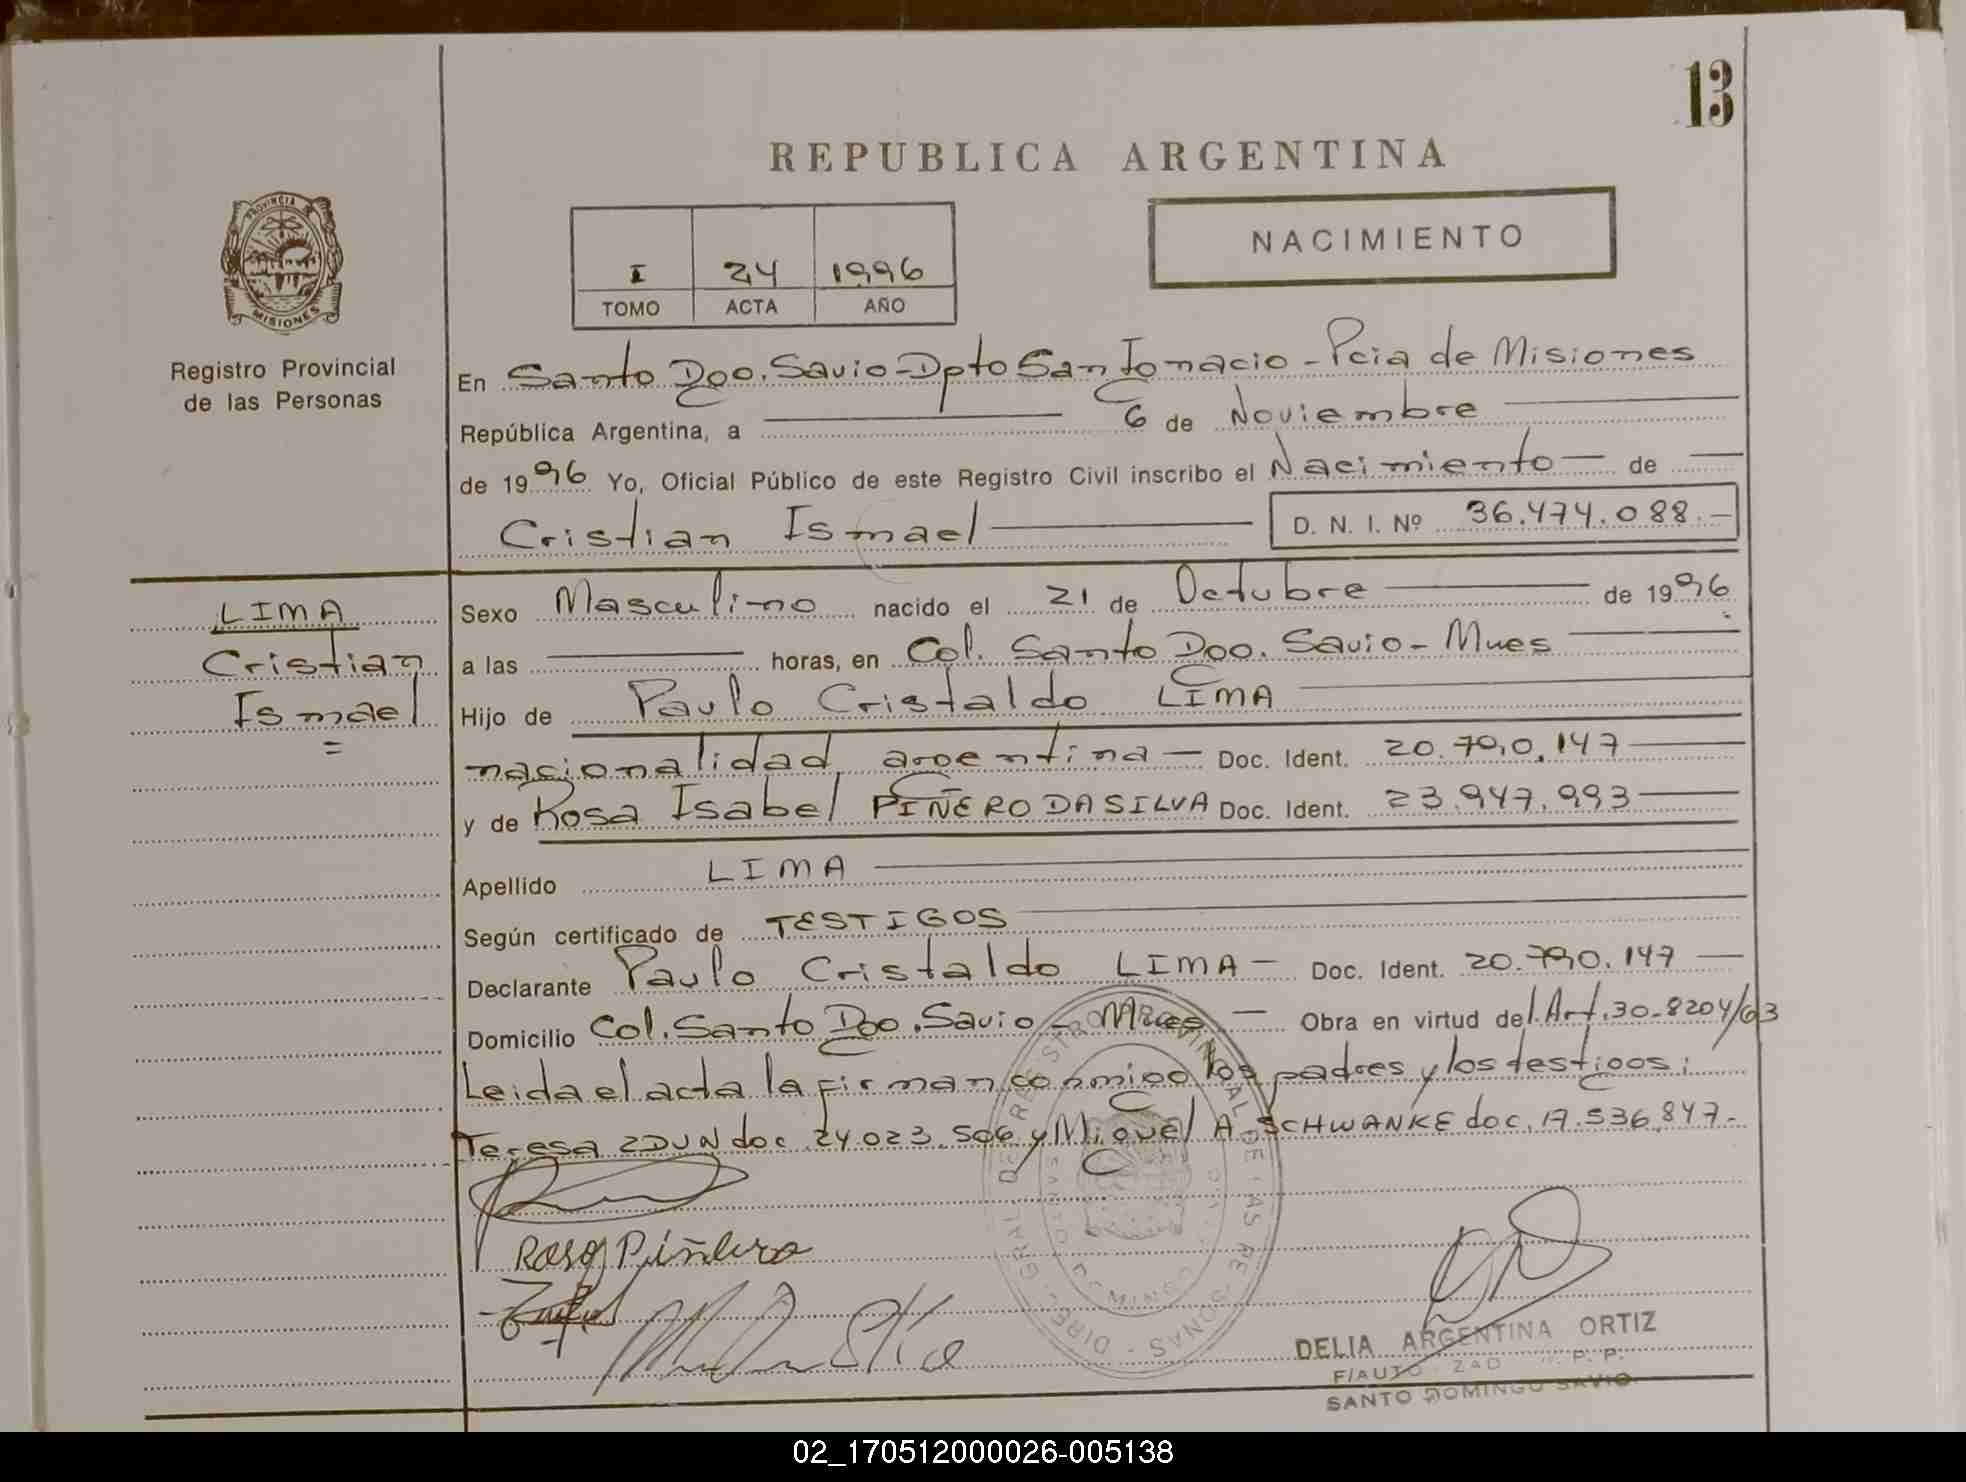 13
REPUBLICA ARGENTINA
PROVINCIA DE
MISIONES
Registro Provincial
de las Personas
I 24 1996
TOMO ACTA AÑO
NACIMIENTO
En Santo Dgo. Savio - Dpto San Ignacio - Pcia de Misiones
República Argentina, a 6 de Noviembre
de 1996 Yo, Oficial Público de este Registro Civil inscribo el Nacimiento de
Cristian Ismael D. N. I. Nº 36.474.088.-
LIMA
Cristian
Ismael
Sexo Masculino nacido el 21 de Octubre de 1996
a las horas, en Col. Santo Dgo. Savio - Mnes
Hijo de Paulo Cristaldo LIMA
nacionalidad argentina - Doc. Ident. 20.790.147
y de Rosa Isabel PIÑERO DA SILVA Doc. Ident. 23.947.993
Apellido LIMA
Según certificado de TESTIGOS
Declarante Paulo Cristaldo LIMA - Doc. Ident. 20.790.147
Domicilio Col. Santo Dgo. Savio - Mnes - Obra en virtud del Art. 30-8204/63
Leida el acta la firman conmigo los padres y los testigos:
Teresa ZDUN doc. 24.023.506 y Miguel A. SCHWANKE doc. 17.536.847.-
Rosa Piñero
DELIA ARGENTINA ORTIZ
SANTO DOMINGO SAVIO
02_170512000026-005138